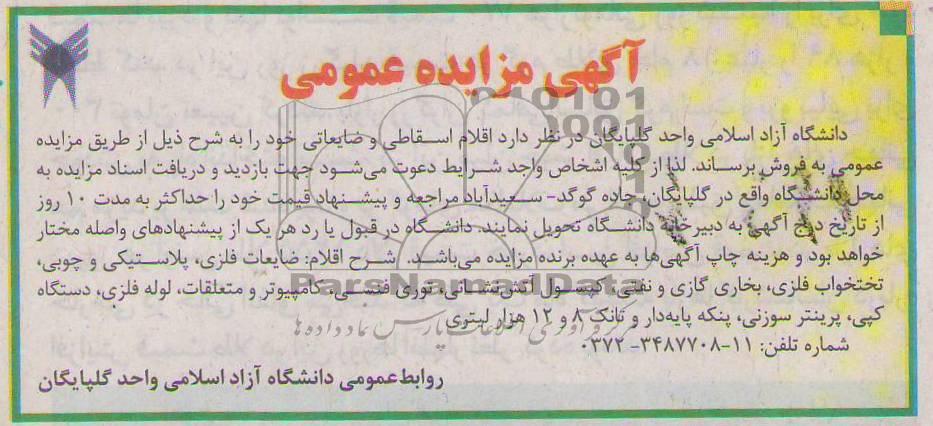 آگهی مزایده عمومی
دانشگاه آزاد اسلامی واحد گلپایگان در نظر دارد اقلام اسقاطی و ضایعاتی خود را به شرح ذیل از طریق مزایده
عمومی به فروش برساند. لذا از کلیه اشخاص واجد شرایط دعوت می‌شود جهت بازدید و دریافت اسناد مزایده به
محل دانشگاه واقع در گلپایگان، جاده گوگد- سعیدآباد مراجعه و پیشنهاد قیمت خود را حداکثر به مدت ۱۰ روز
از تاریخ درج آگهی به دبیرخانه دانشگاه تحویل نمایند. دانشگاه در قبول یا رد هر یک از پیشنهادهای واصله مختار
خواهد بود و هزینه چاپ آگهی‌ها به عهده برنده مزایده می‌باشد. شرح اقلام: ضایعات فلزی، پلاستیکی و چوبی،
تختخواب فلزی، بخاری گازی و نفتی، کپسول آتش‌نشانی، توری فنسی، کامپیوتر و متعلقات، لوله فلزی، دستگاه
کپی، پرینتر سوزنی، پنکه پایه‌دار و تانک ۸ و ۱۲ هزار لیتری
شماره تلفن: ۱۱-۳۴۸۷۷۰۸-۰۳۷۲
روابط عمومی دانشگاه آزاد اسلامی واحد گلپایگان
ParsNamadData